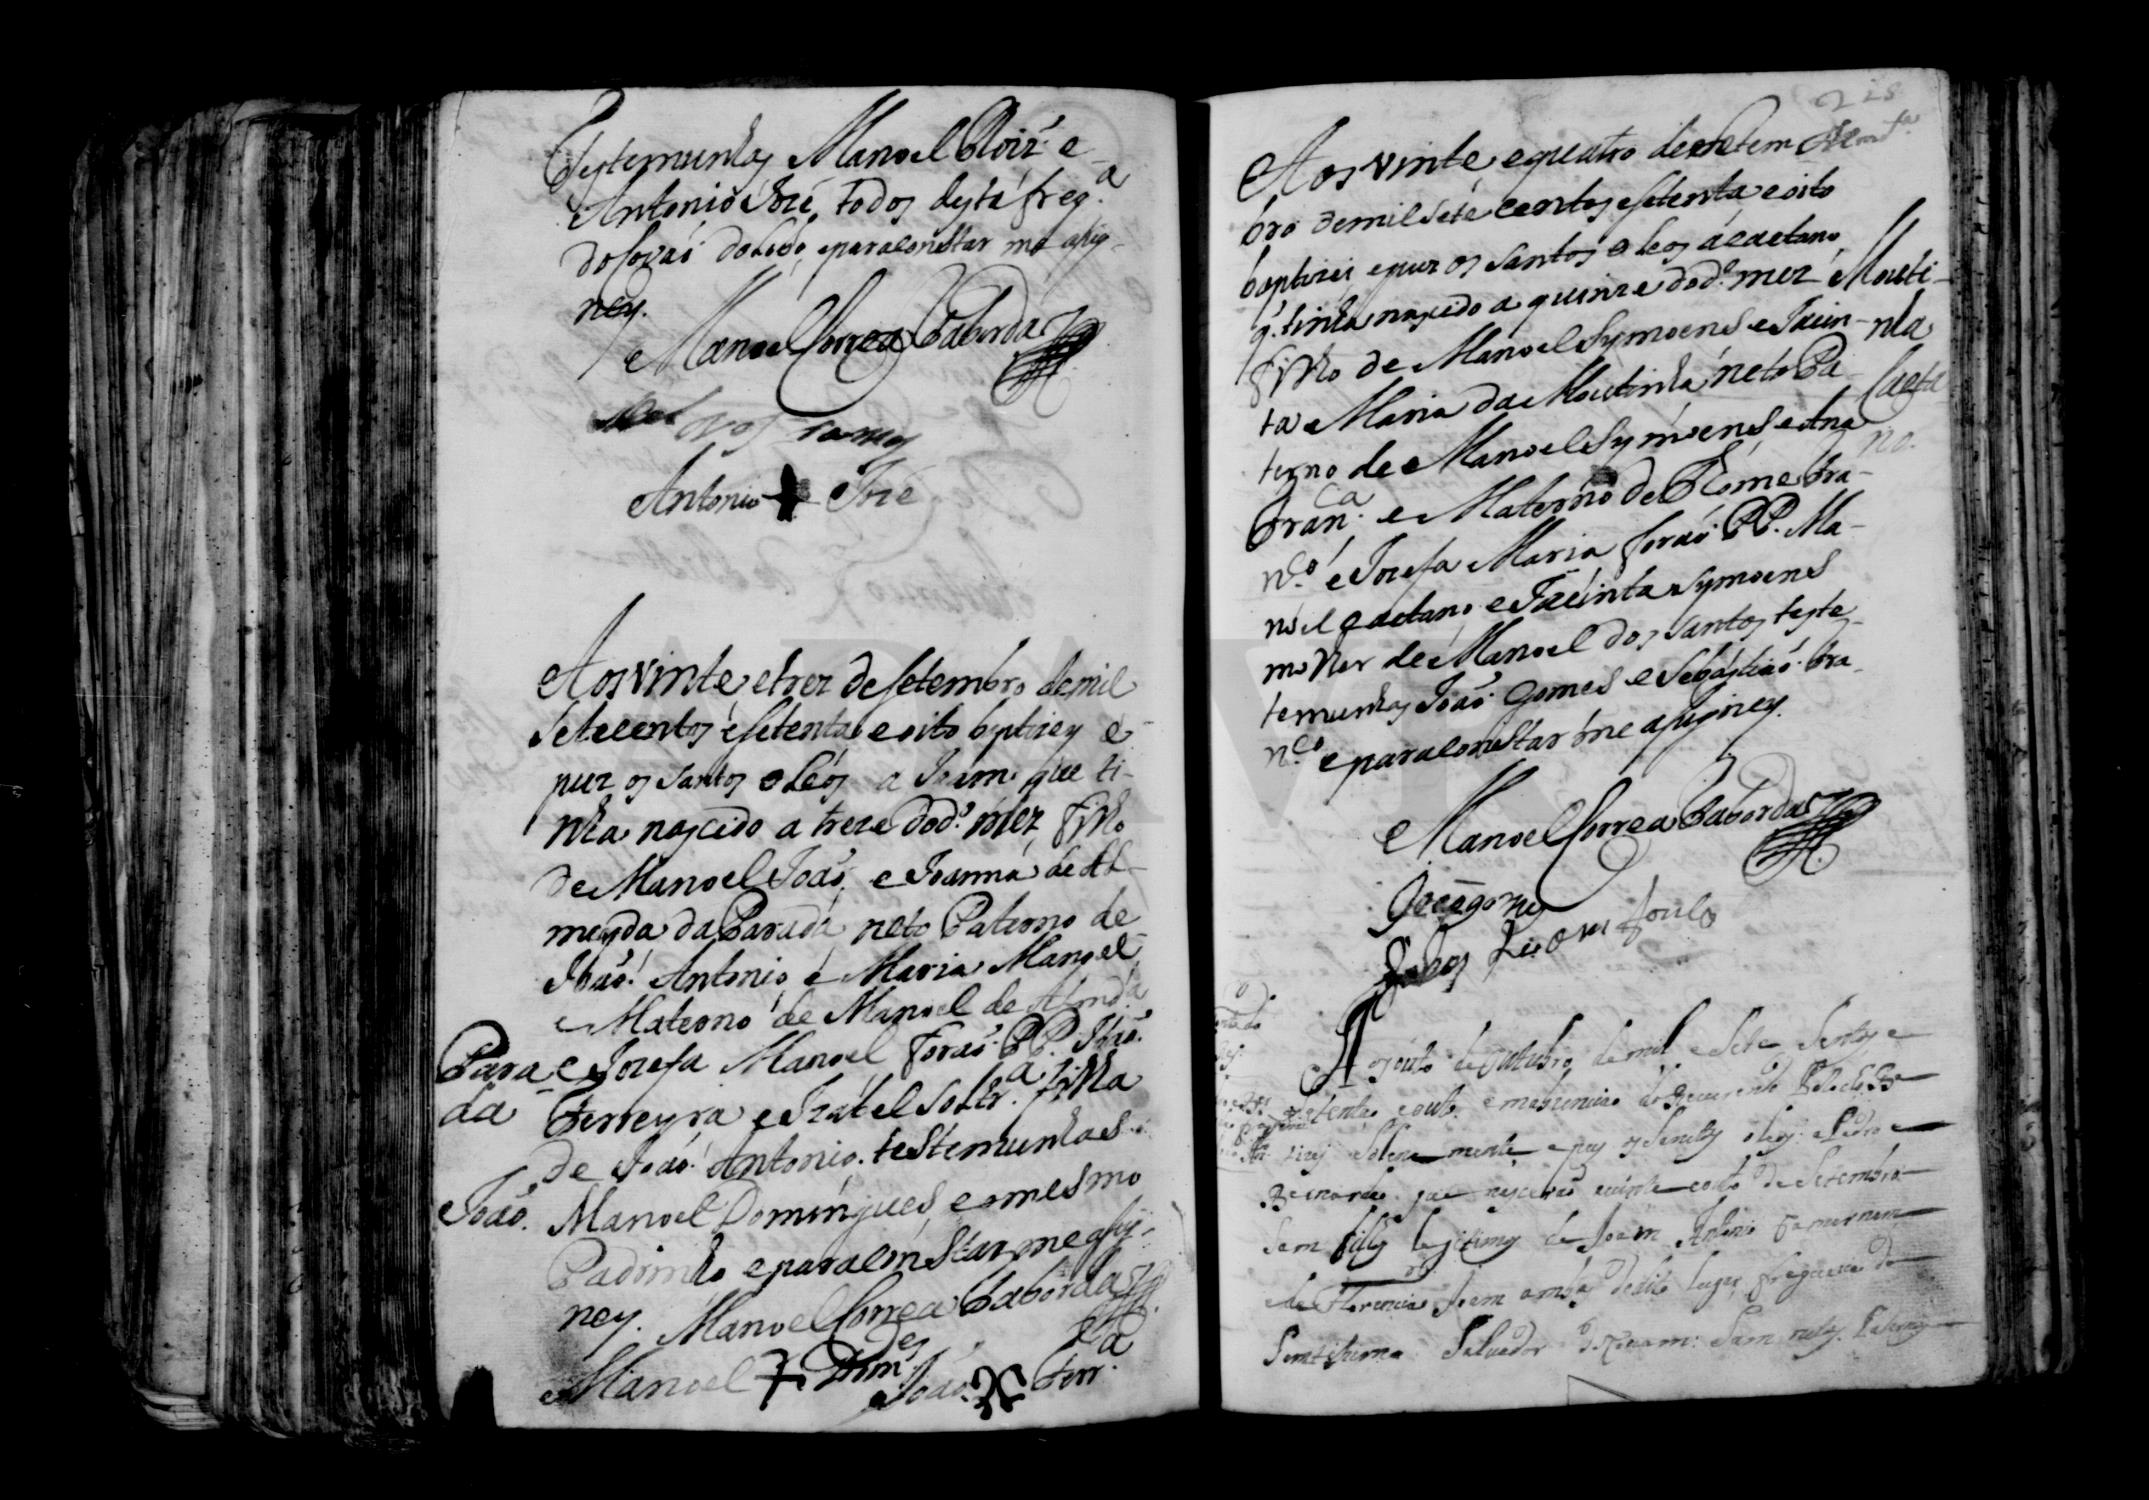 Testemunhas Manoel Roiz' e
Antonio Jozé todos desta freg.ª
do Covaõ do Lobo, e para constar me asig-
ney.
Manoel Correa Taborda
Antonio + Joze
Aos vinte e trez de Setembro de mil
Setecentos e Setenta e oito bptizey e
puz os Santos oleos a Joam que ti-
nha nascido a treze do d.º mez filho
de Manoel Joaõ, e Joanna de Al-
meyda da Parada neto Paterno de
Joaõ Antonio e Maria Manoel,
e Materno de Manoel de Almd.ª
e Jozefa Manoel foraõ PP. Joaõ
Ferreyra e Izabel Soltr.ª filha
de Joaõ Antonio. testemunhas
Manoel Domingues, e o mesmo
Padrinho e para constar me asig-
ney. Manoel Correa Taborda
Manoel + Dom.es
Joaõ Ferr.ª
Para-
da
Joaõ.
Aos vinte e quatro de Setem
bro de mil Sete centos e Setenta e oito
baptizei e puz os Santos oleos a Caetano
q. tinha nascido a quinze do d.º mez
filho de Manoel Symoens e Jacin-
ta Maria da Moutinha neto Pa-
terno de Manoel Symoens e Ana
Fran.ca e Materno de Thome Fra-
n.co e Jozefa Maria foraõ PP. Ma-
noel Caetano e Jacinta Symoens
molher de Manoel dos Santos teste-
temunhas Joaõ Gomes e Sebastiaõ Fra-
n.co e para constar me asigney.
Mouti-
nha
Caeta
no.
Manoel Correa Taborda
Aos outo de outubro de mil e Sete Sentos e
Setenta e outo
solene mente e pus os Santos oleos a Pedro e
Bernardo que nasceraõ a vinte e outo de Setembro
Sam filhos legitimos de Joam Antonio
de Florencia Joam ambos do dito lugar freguezia do
Santissimo Salvador Sam netos Paternos